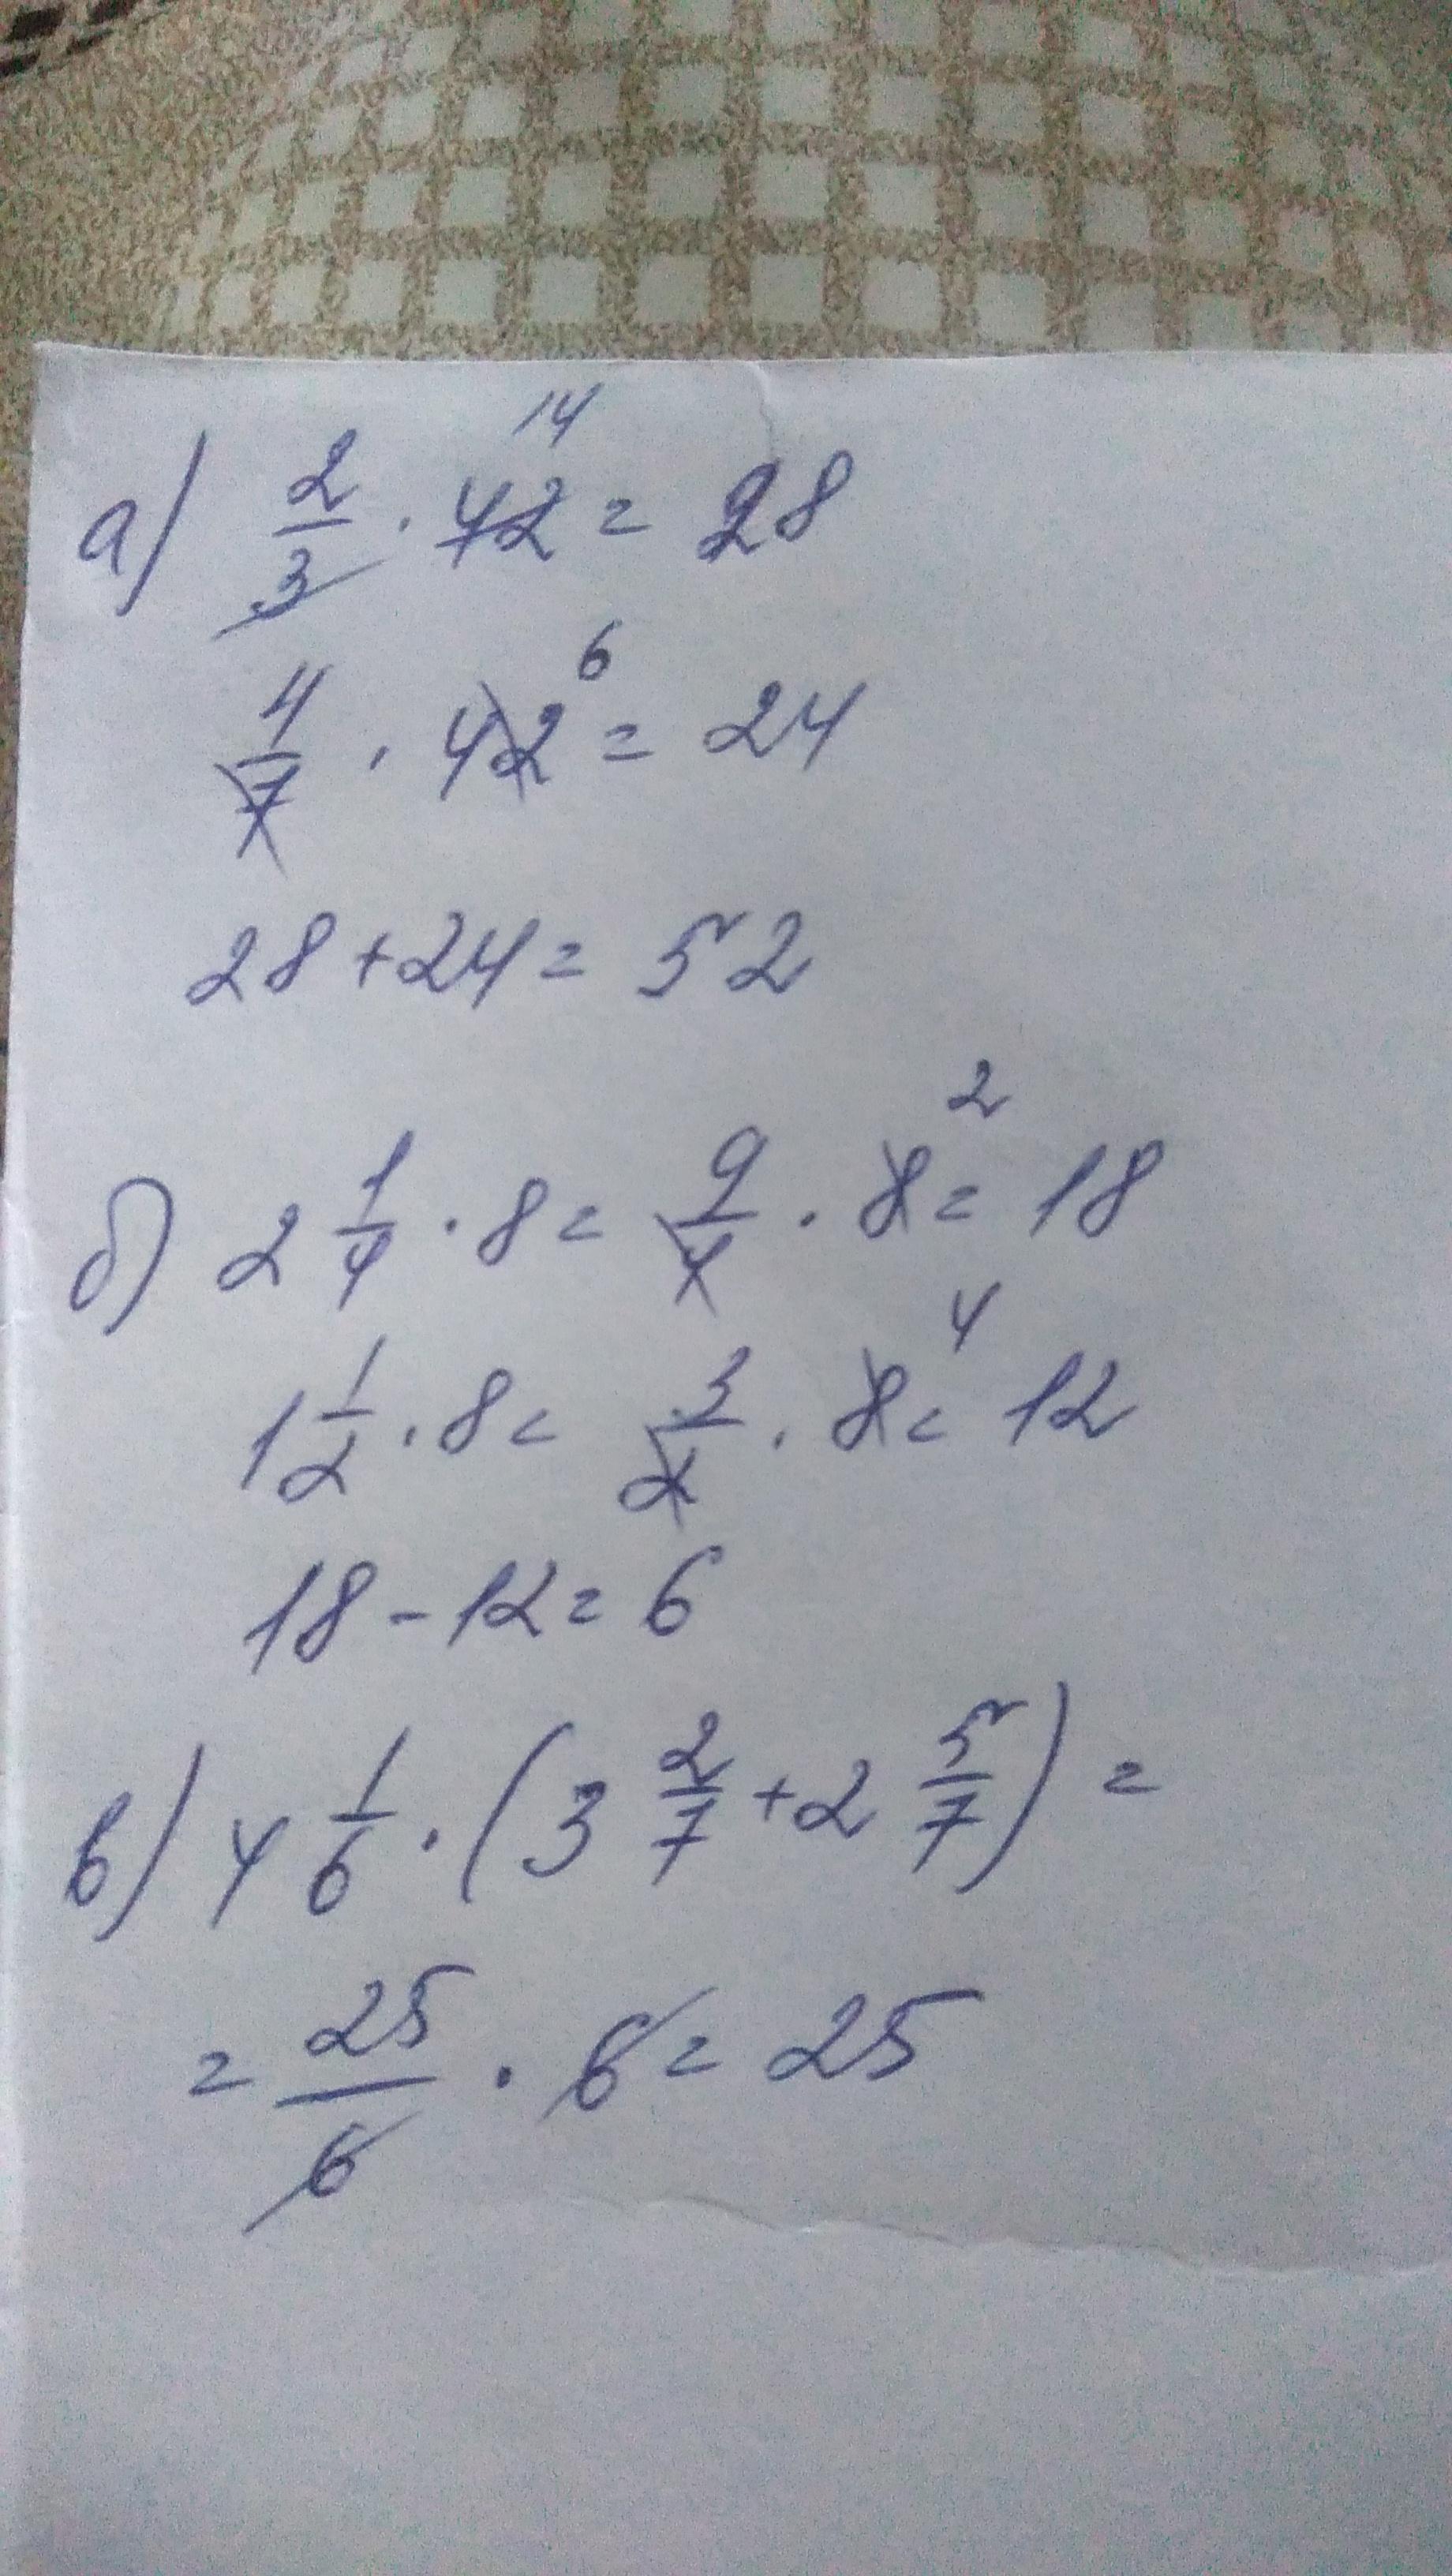 14
а) 2/3 · 42 = 28
6
4/7 · 42 = 24
28 + 24 = 52
2
б) 2 1/4 · 8 = 9/4 · 8 = 18
4
1 1/2 · 8 = 3/2 · 8 = 12
18 - 12 = 6
в) 4 1/6 · (3 2/7 + 2 5/7) =
= 25/6 · 6 = 25